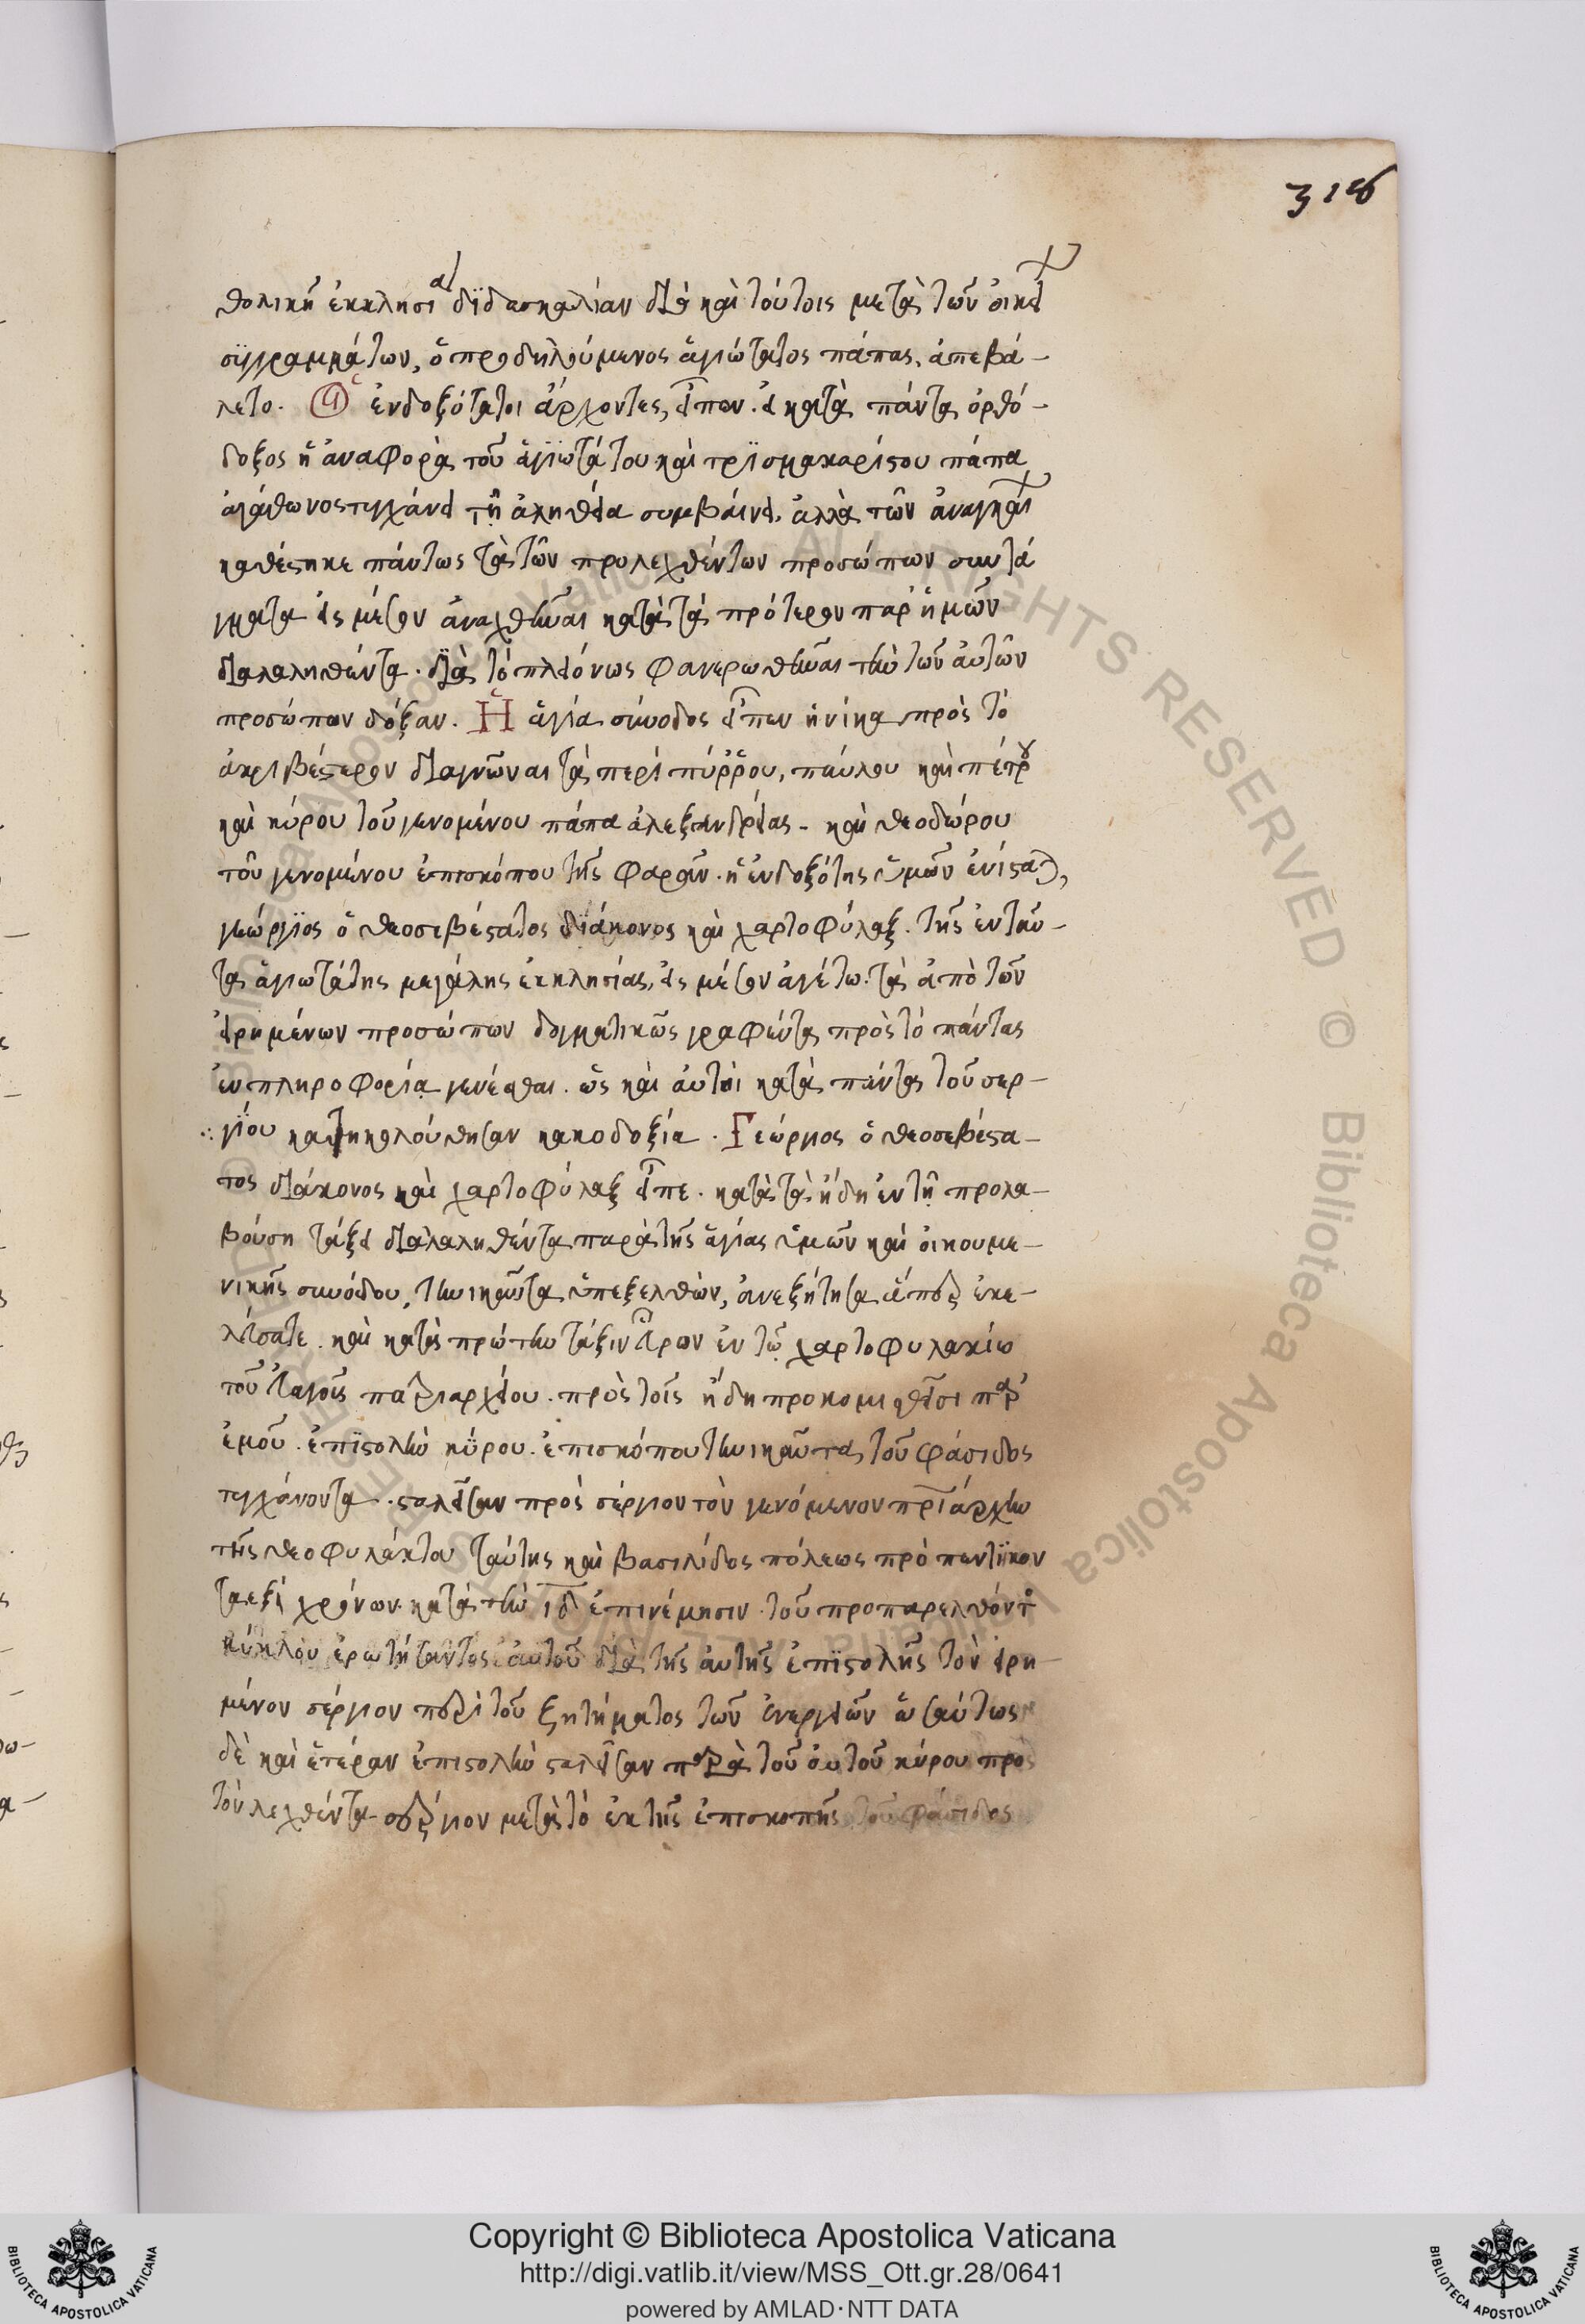 316
θολικῆ ἐκκλησία διδασκαλίαν διὸ καὶ τούτοις μετὰ τῶν οἰκείων
συγγραμμάτων, ὁ προδηλούμενος ἁγιώτατος πάπας, ἀπεβά-
λετο. Οἱ ἐνδοξότατοι ἄρχοντες, εἶπον. εἰ κατὰ πάντα ὀρθό-
δοξος ἡ ἀναφορὰ τοῦ ἁγιωτάτου καὶ τρισμακαρίστου πάπα
ἀγάθωνος τυγχάνει τῆ ἀληθεία συμβαίνει, ἀλλὰ τῶν ἀναγκαίων
καθέστηκε πάντως τὰ τῶν προλεχθέντων προσώπων συντά
γματα εἰς μέσον ἀναχθῆναι κατὰ τὰ πρότερον παρ' ἡμῶν
διαλαληθέντα. διὰ τὸ πλειόνως φανερωθῆναι τὴν τῶν αὐτῶν
προσώπων δόξαν. Ἡ ἁγία σύνοδος εἶπεν ἡνίκα πρὸς τὸ
ἀκριβέστερον διαγνῶναι τὰ περὶ πύρρου, παύλου καὶ πέτρου
καὶ κύρου τοῦ γενομένου πάπα ἀλεξανδρείας. καὶ θεοδώρου
τοῦ γενομένου ἐπισκόπου τῆς φαράν. ἡ ἐνδοξότης ὑμῶν ἐνίσταται,
γεώργιος ὁ θεοσεβέστατος διάκονος καὶ χαρτοφύλαξ. τῆς ἐνταῦ-
θα ἁγιωτάτης μεγάλης ἐκκλησίας, εἰς μέσον ἀγέτω. τὰ ἀπὸ τῶν
εἰρημένων προσώπων δογματικῶς γραφέντα πρὸς τὸ πάντας
ἐν πληροφορία γενέσθαι. ὡς καὶ αὐτοὶ κατὰ πάντα τοῦ σερ-
γίου κατηκολούθησαν κακοδοξία. Γεώργιος ὁ θεοσεβέστα-
τος διάκονος καὶ χαρτοφύλαξ εἶπε. κατὰ τὰ ἤδη ἐν τῆ προλα-
βούση τάξει διαλαληθέντα παρὰ τῆς ἁγίας ὑμῶν καὶ οἰκουμε-
νικῆς συνόδου, τηνικαῦτα ὑπεξελθὼν, ἀνεζήτησα ἅπερ ἐκε-
λεύσατε. καὶ κατὰ πρώτην τάξιν εὗρον ἐν τῶ χαρτοφυλακίω
τοῦ εὐαγοῦς πατριαρχείου. πρὸς τοῖς ἤδη προκομισθεῖσι παρ'
ἐμοῦ. ἐπιστολὴν κύρου. ἐπισκόπου τηνικαῦτα τοῦ φάσιδος
τυγχάνοντα. σταλεῖσαν πρὸς σέργιον τὸν γενόμενον πριάρχην
τῆς θεοφυλάκτου ταύτης καὶ βασιλίδος πόλεως πρὸ πεντήκον
ταεξὶ χρόνων. κατὰ τὴν ιδ ἐπινέμησιν τοῦ προπαρελθόντος
κύκλου ἐρωτήσαντος αὐτοῦ διὰ τῆς αὐτῆς ἐπιστολῆς τὸν εἰρη-
μένον σέργιον περὶ τοῦ ζητήματος τῶν ἐνεργειῶν ὡσαύτως
δὲ καὶ ἑτέραν ἐπιστολὴν σταλεῖσαν παρὰ τοῦ αὐτοῦ κύρου πρὸς
τὸν λεχθέντα σέργιον μετὰ τὸ ἐκ τῆς ἐπισκοπῆς τοῦ φάσιδος
Copyright © Biblioteca Apostolica Vaticana
http://digi.vatlib.it/view/MSS_Ott.gr.28/0641
powered by AMLAD·NTT DATA